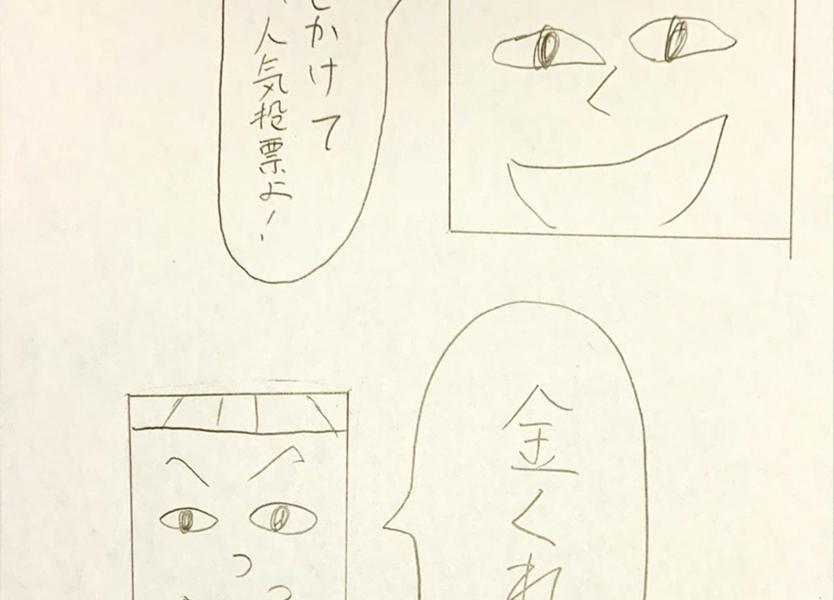 しかけて
人気投票よ!
金くれ